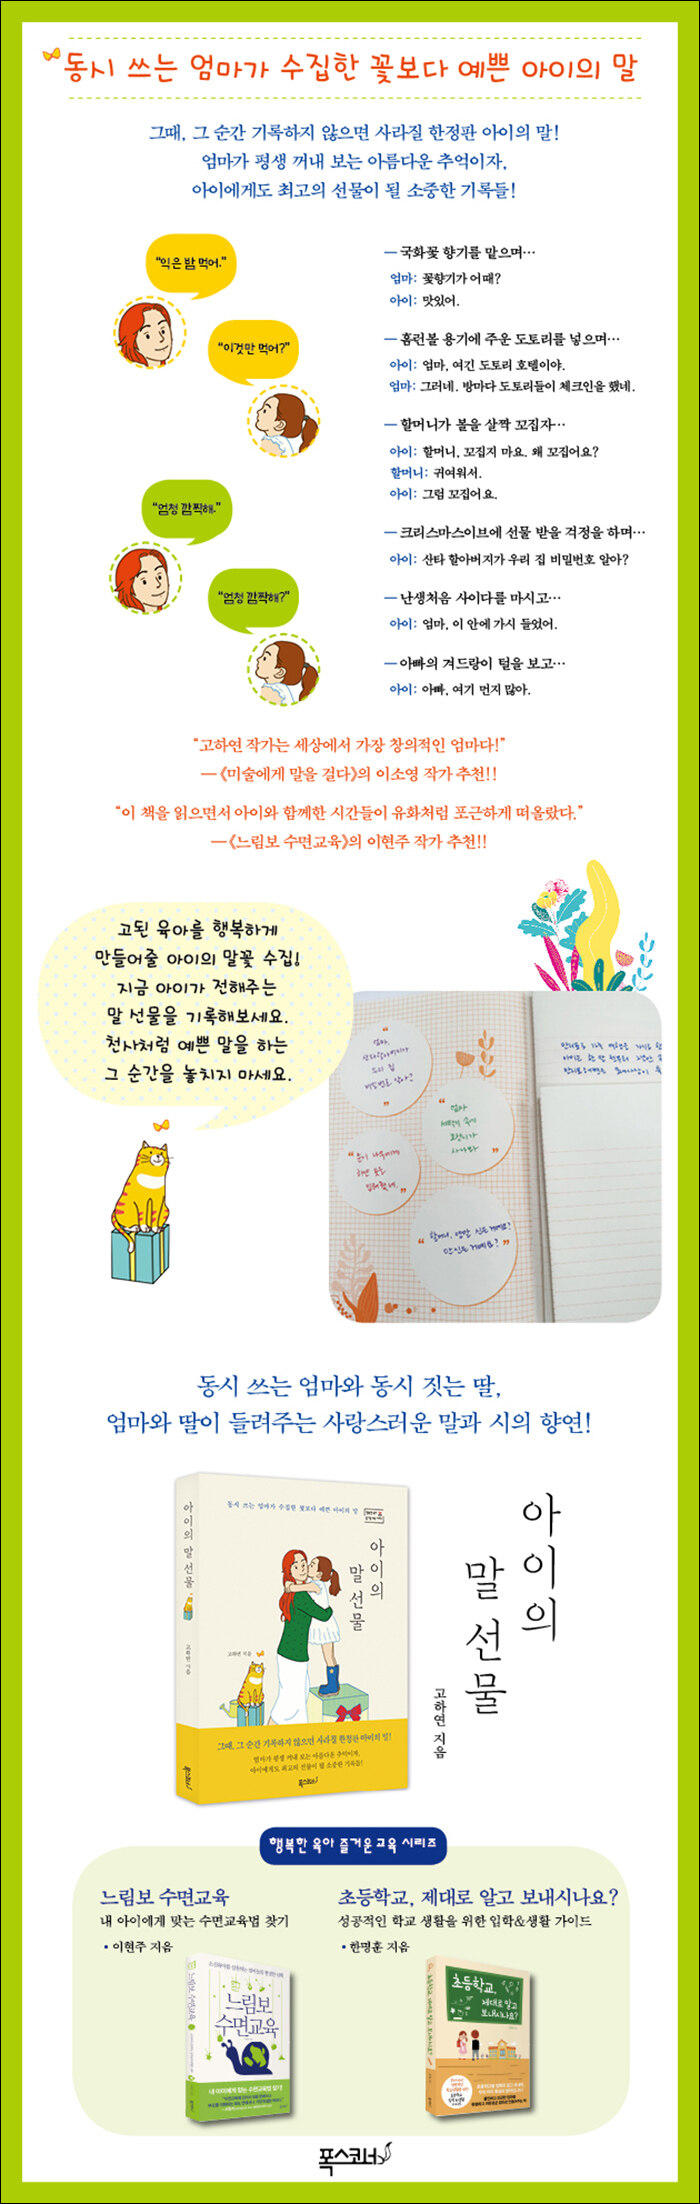 동시 쓰는 엄마가 수집한 꽃보다 예쁜 아이의 말
그때, 그 순간 기록하지 않으면 사라질 한정판 아이의 말!
엄마가 평생 꺼내 보는 아름다운 추억이자,
아이에게도 최고의 선물이 될 소중한 기록들!
“익은 밤 먹어.”
“이것만 먹어?”
“엄청 깜찍해.”
“엄청 깜짝해?”
— 국화꽃 향기를 맡으며…
엄마: 꽃향기가 어때?
아이: 맛있어.
— 홈런볼 용기에 주운 도토리를 넣으며…
아이: 엄마, 여긴 도토리 호텔이야.
엄마: 그러네. 방마다 도토리들이 체크인을 했네.
— 할머니가 볼을 살짝 꼬집자…
아이: 할머니, 꼬집지 마요. 왜 꼬집어요?
할머니: 귀여워서.
아이: 그럼 꼬집어요.
— 크리스마스이브에 선물 받을 걱정을 하며…
아이: 산타 할아버지가 우리 집 비밀번호 알아?
— 난생처음 사이다를 마시고…
아이: 엄마, 이 안에 가시 들었어.
— 아빠의 겨드랑이 털을 보고…
아이: 아빠, 여기 먼지 많아.
“고하연 작가는 세상에서 가장 창의적인 엄마다!”
—《미술에게 말을 걸다》의 이소영 작가 추천!!
“이 책을 읽으면서 아이와 함께한 시간들이 유화처럼 포근하게 떠올랐다.”
—《느림보 수면교육》의 이현주 작가 추천!!
고된 육아를 행복하게
만들어줄 아이의 말꽃 수집!
지금 아이가 전해주는
말 선물을 기록해보세요.
천사처럼 예쁜 말을 하는
그 순간을 놓치지 마세요.
“엄마,
산타할아버지가
우리 집
비밀번호 알아?”
“엄마
사나봐”
“눈이 나무에게
하얀 옷을
입혀줬네.”
“할머니, 양말 신는 거예요?
안 신는 거예요?”
동시 쓰는 엄마와 동시 짓는 딸,
엄마와 딸이 들려주는 사랑스러운 말과 시의 향연!
아이의 말 선물
고하연 지음
동시 쓰는 엄마가 수집한 꽃보다 예쁜 아이의 말
아이의
말 선물
고하연 지음
그때, 그 순간 기록하지 않으면 사라질 한정판 아이의 말!
엄마가 평생 꺼내 보는 아름다운 추억이자,
아이에게도 최고의 선물이 될 소중한 기록들!
폭스코너
아이의
말 선물
고하연 지음
행복한 육아 즐거운 교육 시리즈
느림보 수면교육
내 아이에게 맞는 수면교육법 찾기
• 이현주 지음
초등학교, 제대로 알고 보내시나요?
성공적인 학교 생활을 위한 입학&생활 가이드
• 한명훈 지음
느림보
수면교육
내 아이에게 맞는 수면교육법 찾기!
초등학교,
제대로 알고
보내시나요?
폭스코너